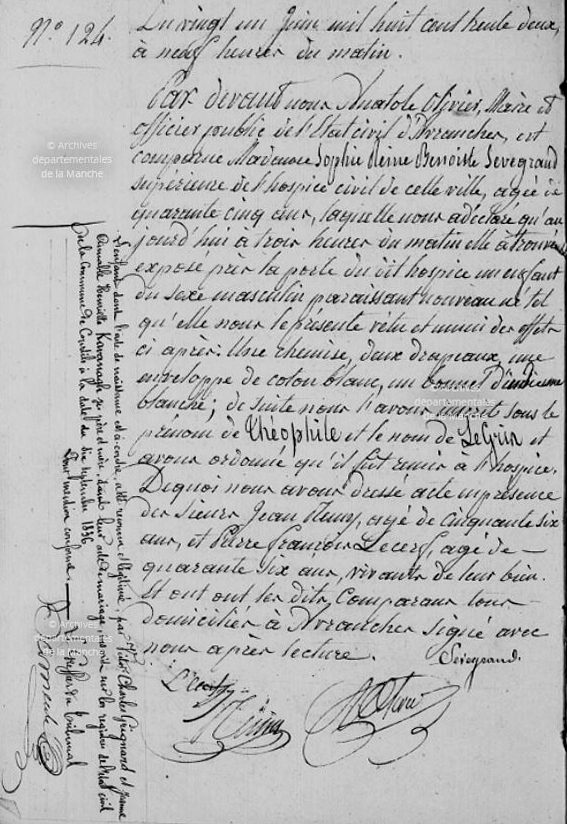 N.º 124.
Du vingt un Juin mil huit cent trente deux,
à neuf heures du matin.
Par devant nous Anatole Olivier, Maire et
officier public de l'Etat civil d'Avranches, est
comparue Madame Sophie Reine Benoiste Sevegrand
supérieure de l'hospice civil de cette ville, agée de
quarante cinq ans, laquelle nous a déclaré qu'au
jourd'hui à trois heures du matin elle a trouvé
exposé près la porte du dit hospice un enfant
du sexe masculin paraissant nouveau né tel
qu'elle nous le présente vêtu et muni des effets
ci après: Une chemise, deux drapeaux, une
enveloppe de coton blanc, un bonnet d'indienne
blanche; de suite nous l'avons inscrit sous le
prénom de Théophile et le nom de LeGrin et
avons ordonné qu'il fut remis à l'hospice.
Dequoi nous avons dressé acte en présence
des Sieurs Jean agé de cinquante six
ans, et Pierre françois Lecerf, agé de
quarante six ans, vivants de leur bien.
Et ont les dits Comparans tous
domiciliés à Avranches signé avec
nous après lecture.
Sevegrand.
L'enfant dont l'acte de naissance est ci-contre, a été reconnu et légitimé, par Victor Charles Guignard et Jeanne
Henriette Kavanagh, ses père et mère, dans leur acte de mariage, inscrit sur les registres de l'Etat civil
de la Commune de à la date du dix septembre 1836
Pour mention conforme.
du tribunal
© Archives
départementales
de la Manche
© Archives
départementales
de la Manche
© Archives
départementales
de la Manche